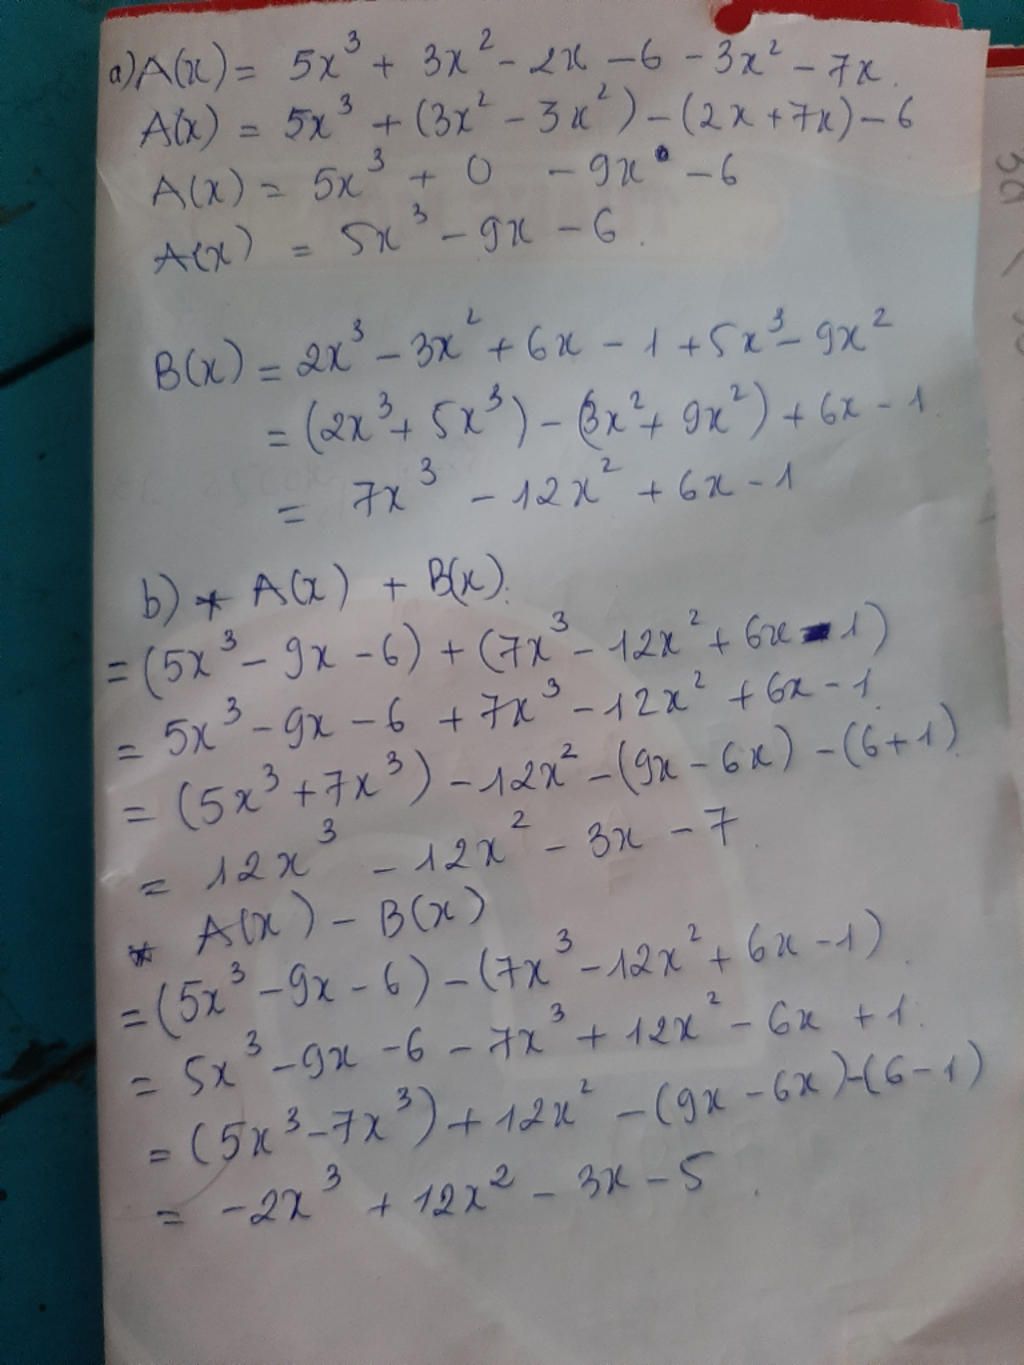 a) A(x) = 5x³ + 3x² - 2x - 6 - 3x² - 7x.
A(x) = 5x³ + (3x² - 3x²) - (2x + 7x) - 6
A(x) = 5x³ + 0 - 9x - 6
A(x) = 5x³ - 9x - 6.
B(x) = 2x³ - 3x² + 6x - 1 + 5x³ - 9x²
= (2x³ + 5x³) - (3x² + 9x²) + 6x - 1
= 7x³ - 12x² + 6x - 1
b) * A(x) + B(x).
= (5x³ - 9x - 6) + (7x³ - 12x² + 6x - 1)
= 5x³ - 9x - 6 + 7x³ - 12x² + 6x - 1
= (5x³ + 7x³) - 12x² - (9x - 6x) - (6 + 1)
= 12x³ - 12x² - 3x - 7
* A(x) - B(x)
= (5x³ - 9x - 6) - (7x³ - 12x² + 6x - 1)
= 5x³ - 9x - 6 - 7x³ + 12x² - 6x + 1.
= (5x³ - 7x³) + 12x² - (9x - 6x) - (6 - 1)
= -2x³ + 12x² - 3x - 5.